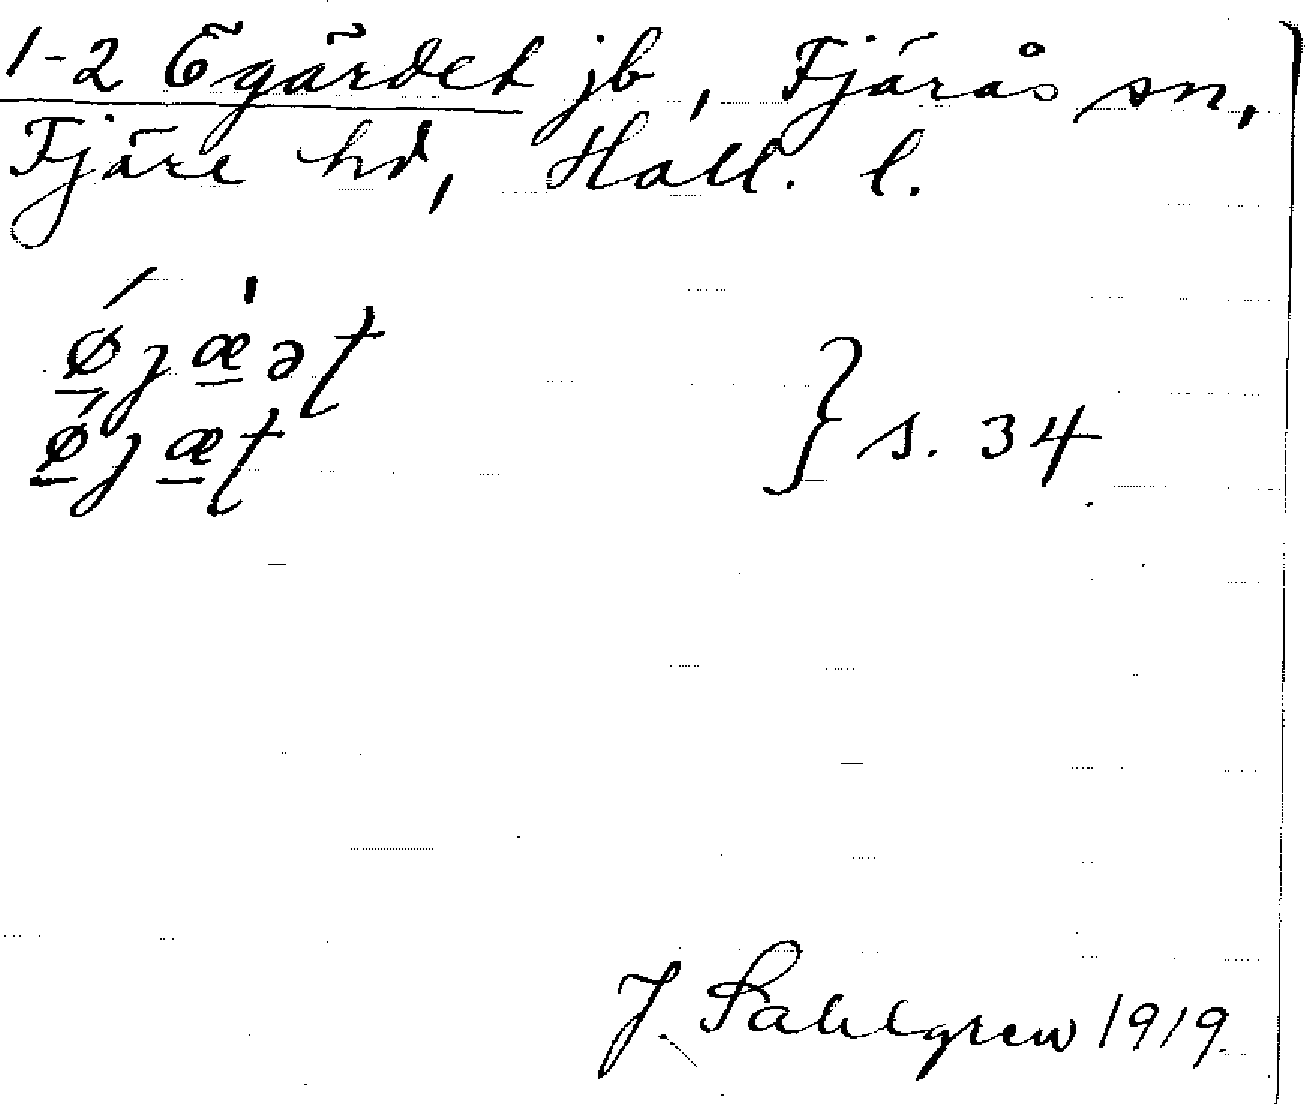 1-2 Ögärdet jb, Fjärås sn,
Fjäre hd, Hall. l.
ǿjæ̍əʈ
ǿjæʈ } s. 34
J. Sahlgren 1919